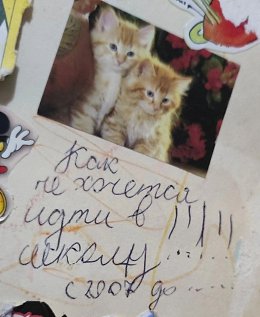 Как
не хочется
идти в
школу !!!!!
с 2007 до ......